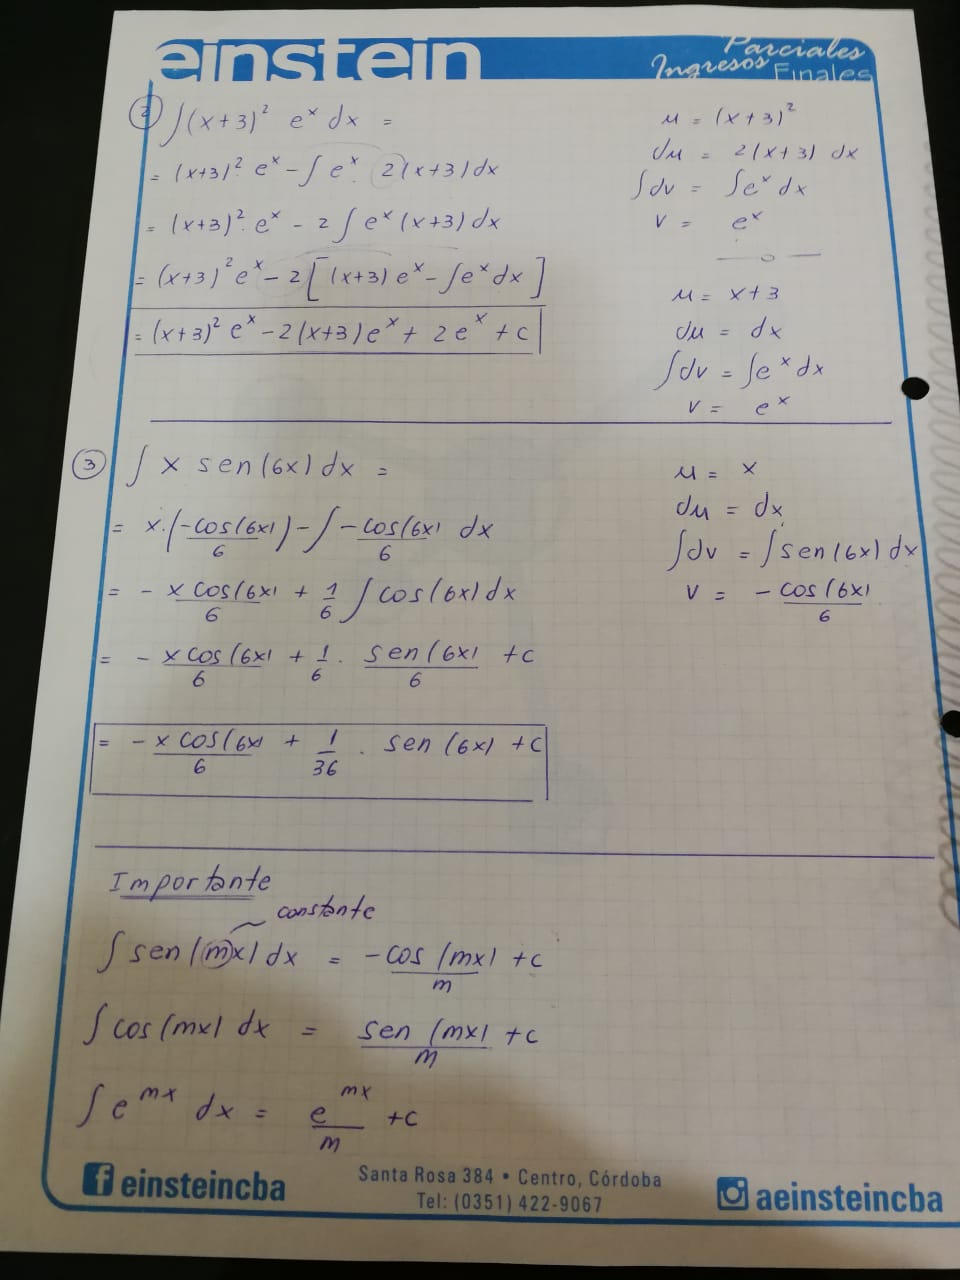 einstein
Parciales
Ingresos
Finales
② ∫(x+3)² eˣ dx =
= (x+3)². eˣ - ∫ eˣ. 2(x+3) dx
= (x+3)². eˣ - 2 ∫ eˣ (x+3) dx
= (x+3)² eˣ - 2 [ (x+3) eˣ - ∫eˣ dx ]
= (x+3)² eˣ - 2(x+3) eˣ + 2 eˣ + c
u = (x+3)²
du = 2(x+3) dx
∫dv = ∫eˣ dx
v = eˣ
u = x+3
du = dx
∫dv = ∫eˣ dx
v = eˣ
③ ∫ x sen(6x) dx =
= x.(-cos(6x)/6) - ∫ -cos(6x)/6 dx
= - x cos(6x)/6 + 1/6 ∫ cos(6x) dx
= - x cos(6x)/6 + 1/6 . sen(6x)/6 + c
= - x cos(6x)/6 + 1/36 . sen(6x) + c
u = x
du = dx
∫dv = ∫sen(6x) dx
v = - cos(6x)/6
Importante
constante
∫ sen(mx) dx = -cos(mx)/m + c
∫ cos(mx) dx = sen(mx)/m + c
∫ eᵐˣ dx = eᵐˣ/m + c
einsteincba
Santa Rosa 384 • Centro, Córdoba
Tel: (0351) 422-9067
aeinsteincba